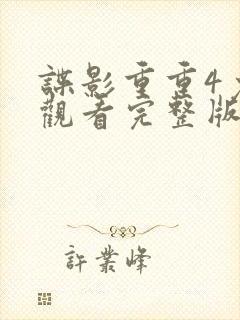 諜影重重4
觀看完整版
許業峰